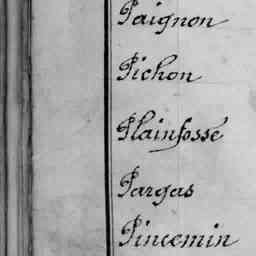 Paignon
Pichon
Plainfossé
Pargas
Pincemin